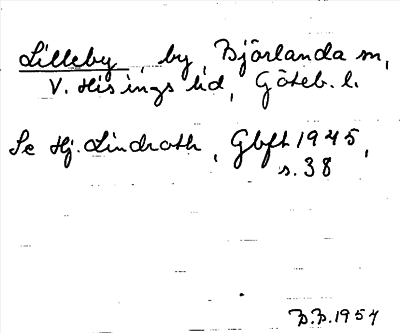 Lilleby, by, Björlanda sn,
V. Hisings hd, Göteb. l.
Se Hj. Lindroth, Gbft 1945,
s. 38
B.B. 1954